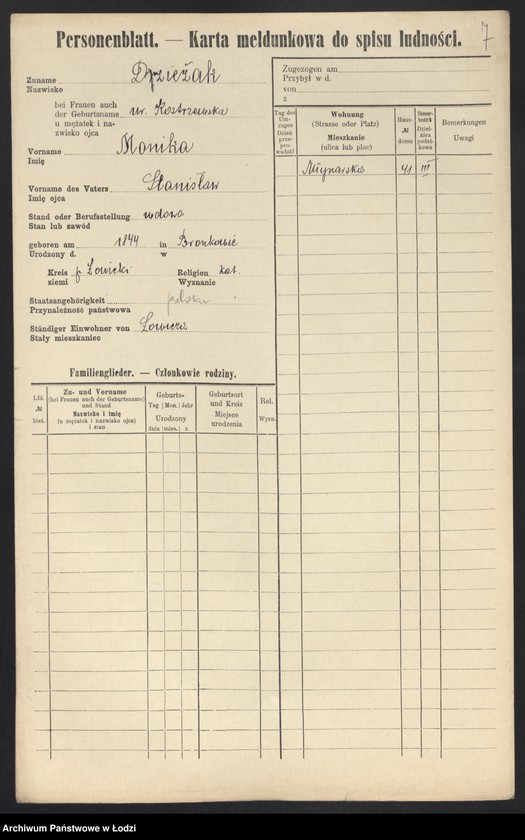 7
Personenblatt. — Karta meldunkowa do spisu ludności.
Zuname Dzieżak
Nazwisko
bei Frauen auch
der Geburtsname ur. Kostrzewska
u mężatek i na-
zwisko ojca
Vorname Monika
Imię
Vorname des Vaters Stanisław
Imię ojca
Stand oder Berufsstellung wdowa
Stan lub zawód
geboren am 1844 in
Urodzony d. w
Kreis Łowicki Religion kat.
ziemi Wyznanie
Staatsangehörigkeit
Przynależność państwowa
Ständiger Einwohner von Łowicza
Stały mieszkaniec
Familienglieder. — Członkowie rodziny.
Lfd. № bież.
Zu- und Vorname
(bei Frauen auch der Geburtsname)
und Stand
Nazwisko i imię
(u mężatek i nazwisko ojca)
i stan
Geburts-
Tag Mon. Jahr
Urodzony
dnia mies. r.
Geburtsort
und Kreis
Miejsce
urodzenia
Rel.
Wyzn.
Zugezogen am
Przybył w d.
von
z
Tag des
Um-
zuges
Dzień
prze-
prowadzki
Wohnung
(Strasse oder Platz)
Mieszkanie
(ulica lub plac)
Haus-
№
domu
Steuer-
bezirk
Dziel-
nica
podat-
kowa
Bemerkungen
Uwagi
Młynarska 41 III
Archiwum Państwowe w Łodzi